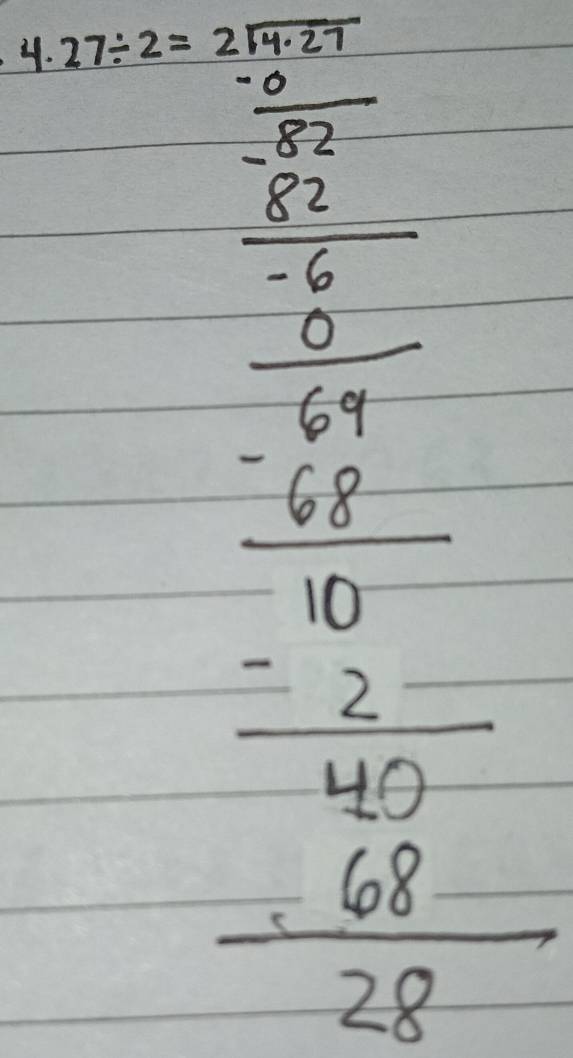 4.27÷2= 2√4.27
-0
-82
82
-6
0
69
-
68
10
-
2
40
68
28